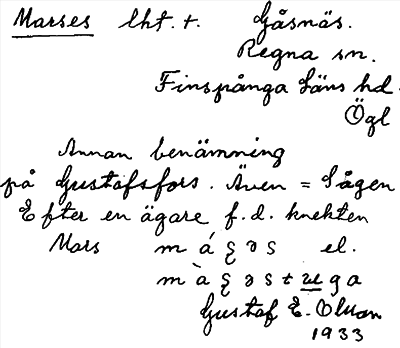 Marses lht. t. Gåsnäs.
Regna sn.
Finspånga läns hd.
Ögl
Annan benämning
på Gustafsfors. Även = Sågen
Efter en ägare f.d. knekten
Mars m á ʂ ə s el.
m à ʂ ə s t ɯ g a
Gustaf E. Olsson
1933